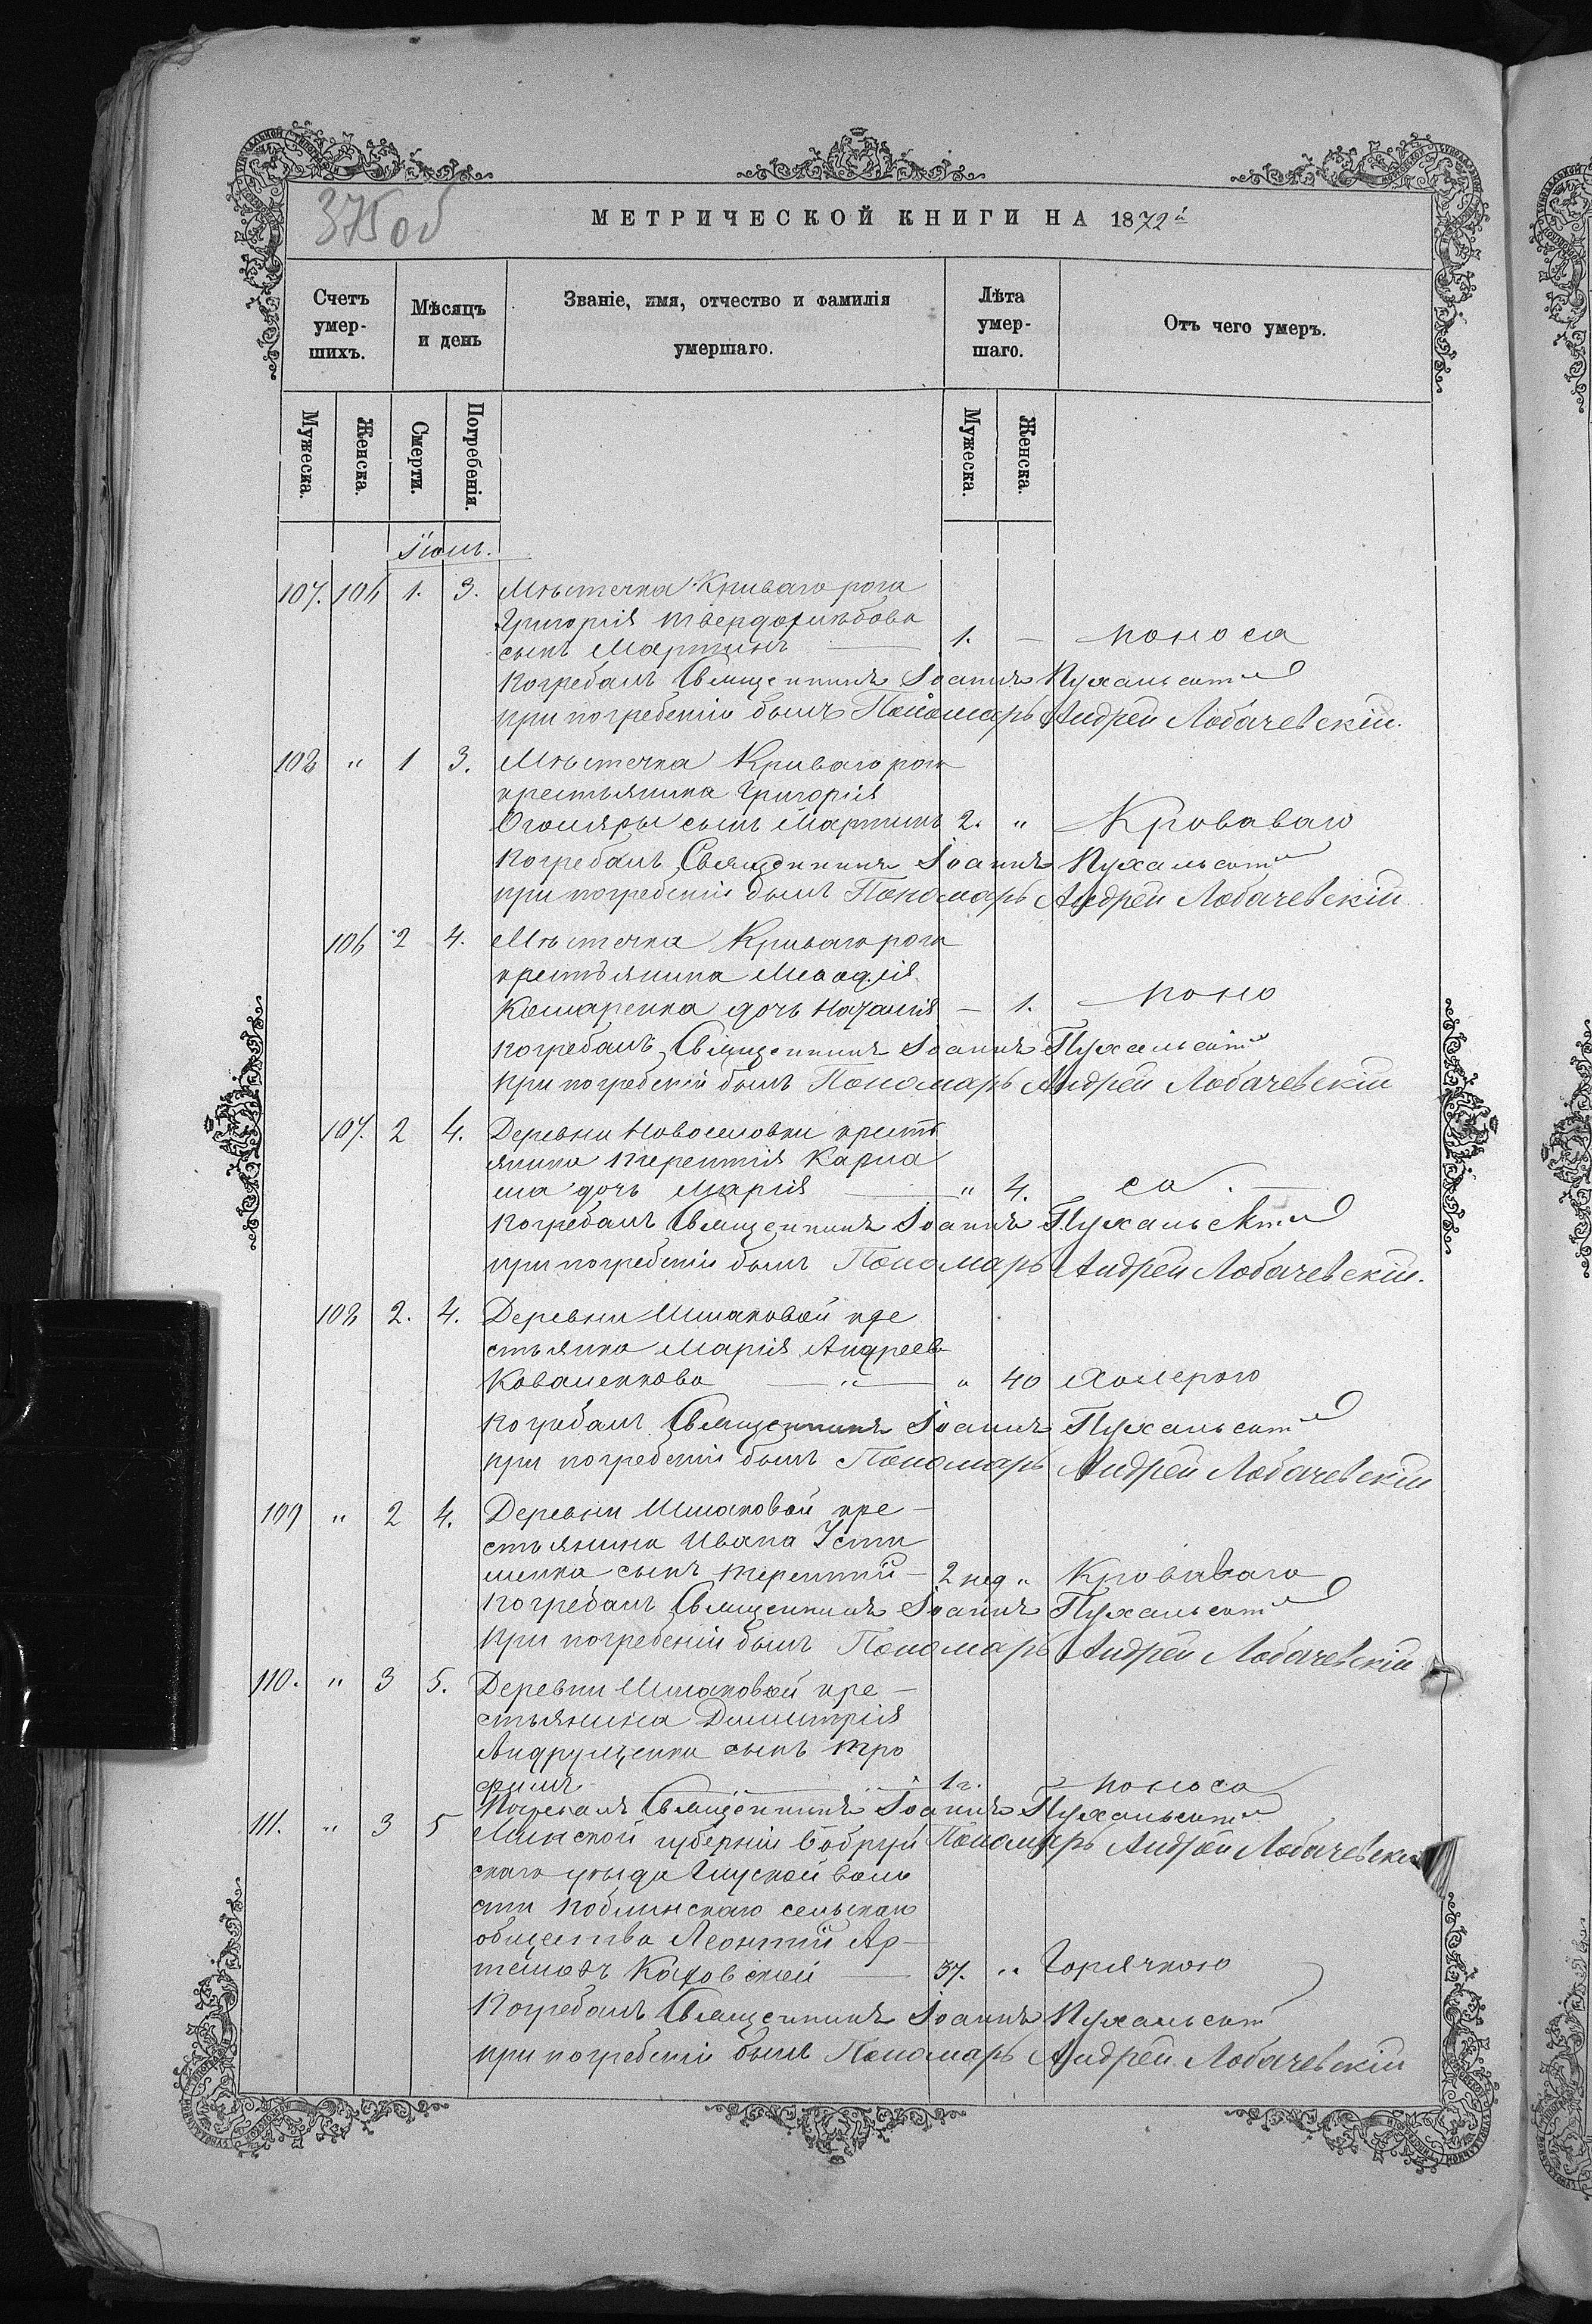 375 об
МЕТРИЧЕСКОЙ КНИГИ НА 1872й
Счетъ умер- шихъ.
Мѣсяцъ и день
Званіе, имя, отчество и фамилія умершаго.
Лѣта умер- шаго.
Отъ чего умеръ.
Мужеска. Женска. Смерти. Погребенія. Мужеска. Женска.
Іюль.
107. 106 1. 3. Мѣстечка Криваго рога
Григорія Твердохлѣбова
сынъ Мартинъ — 1. — поноса
Погребалъ Священникъ Іоаннъ Пухальскій
при погребеніи былъ Пономарь Андрей Лобачевскій.
108 " 1 3. Мѣстечка Криваго рога
крестьянина Григорія
сынъ Мартинъ 2. " Кроваваго
Погребалъ Священникъ Іоаннъ Пухальскій
при погребеніи былъ Пономарь Андрей Лобачевскій
106 2 4. Мѣстечка Криваго рога
крестьянина
дочь Наталія — 1. поно
погребалъ Священникъ Іоаннъ Пухальскій
при погребеніи былъ Пономарь Андрей Лобачевскій
107. 2 4. Деревни Новоселовки кресть
янина Терентія Карна
дочь Марія — " 4. са. —
Погребалъ Священникъ Іоаннъ Пухальскій
при погребеніи былъ Пономарь Андрей Лобачевскій.
108 2. 4. Деревни Шмаковой кре
стьянка Марія Андреева
Коваленкова — " — " 40 холерою
погребалъ Священникъ Іоаннъ Пухальскій
при погребеніи былъ Пономарь Андрей Лобачевскій
109 " 2 4. Деревни Шмаковой кре-
стьянина Ивана Усти
менка сынъ Терентій - 2 нед " Кроваваго
Погребалъ Священникъ Іоаннъ Пухальскій
при погребеніи былъ Пономарь Андрей Лобачевскій
110. " 3 5. Деревни Шмаковой кре-
стьянина Димитрія
Андрущенка сынъ Тро
фимъ — 1г. поноса
Погребалъ Священникъ Іоаннъ Пухальскій
111. " 3 5 Минской губерніи Бобруй Пономарь Андрей Лобачевскій
скаго уѣзда Глуской воло
сти сельскаго
общества Леонтій Ар-
темовъ — 37. " Горячкою
Погребалъ Священникъ Іоаннъ Пухальскій
при погребеніи былъ Пономарь Андрей Лобачевскій